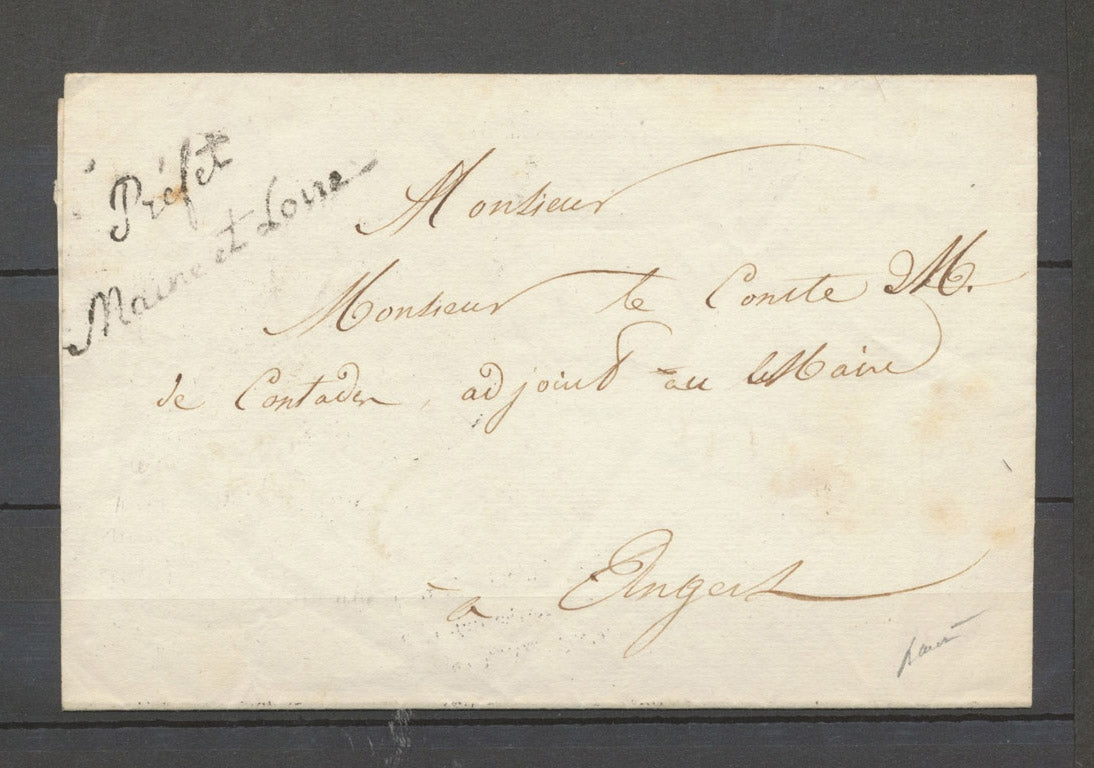 Préfet
Maine et Loire
Monsieur
Monsieur le Comte M.
de Contades, adjoint au Maire
à Angers